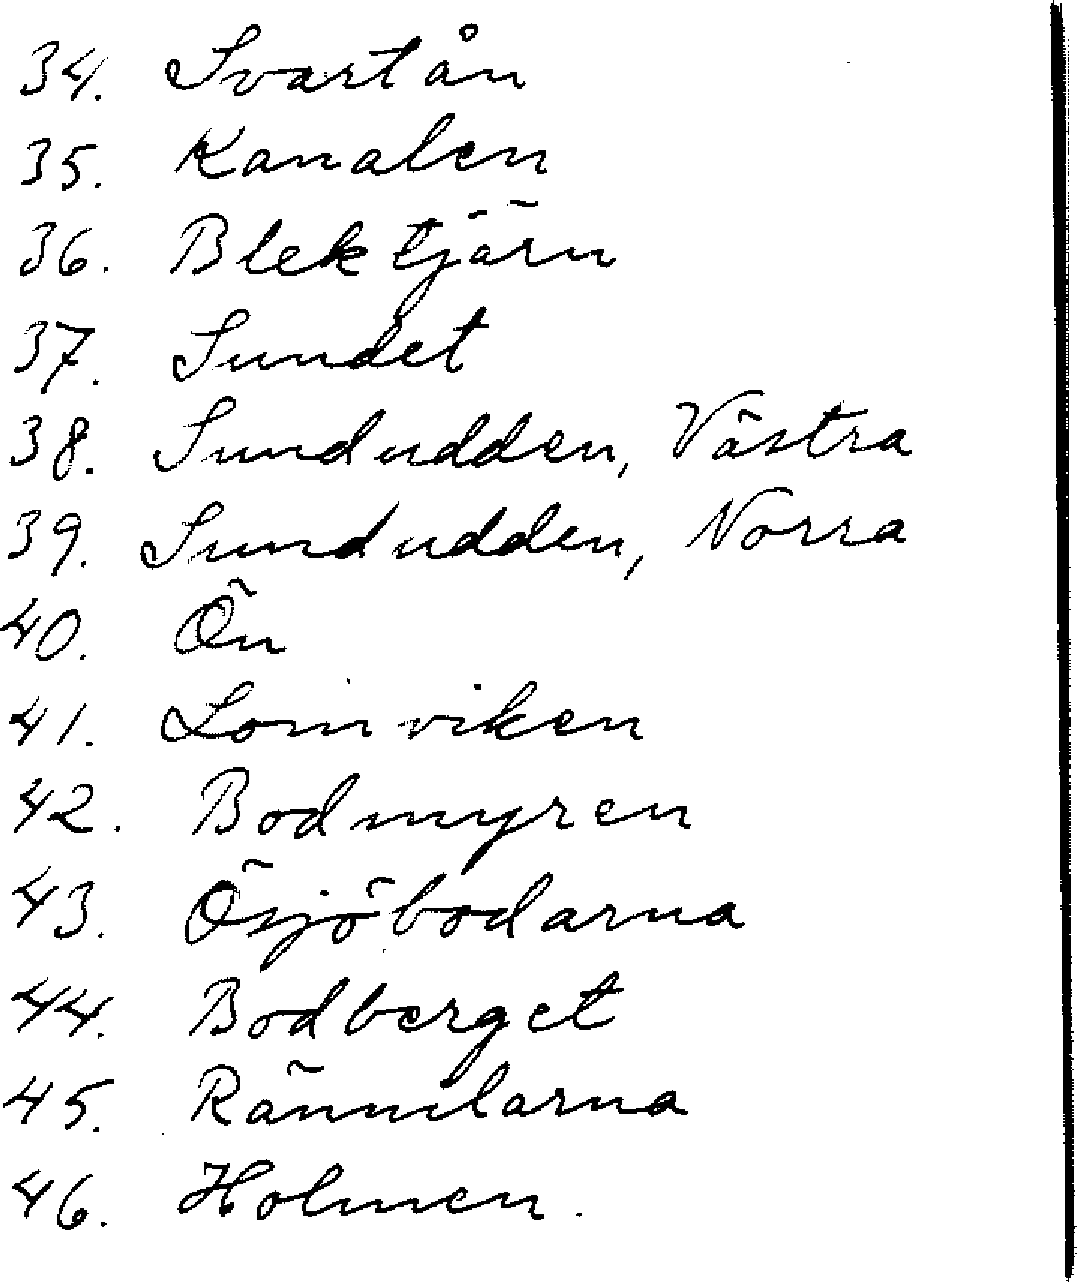 34. Svartån
35. Kanalen
36. Blektjärn
37. Sundet
38. Sundudden, Västra
39. Sundudden, Norra
40. Ön
41. Lomviken
42. Bodmyren
43. Ösjöbodarna
44. Bodberget
45.
46. Holmen.